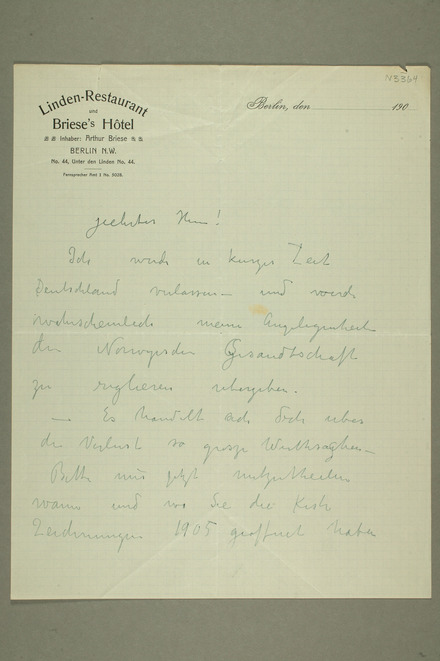 N3364
Linden-Restaurant
und
Briese's Hôtel
Inhaber: Arthur Briese
BERLIN N.W.
No. 44, Unter den Linden No. 44.
Fernsprecher Amt I No. 5028.
Berlin, den 190
geehrter Herr!
Ich werde in kurzer Zeit
Deutschland verlassen – und werde
wahrscheinlich meine Angelegenheit
der Norwegischen Gesandtschaft
zu übergeben.
— Es handelt sich doch uber
den Verlust so grosse Werthsachen –
Bitte mir jetzt mitzutheilen
wann und wo Sie die Kiste
Zeichnungen 1905 geöffnet haben